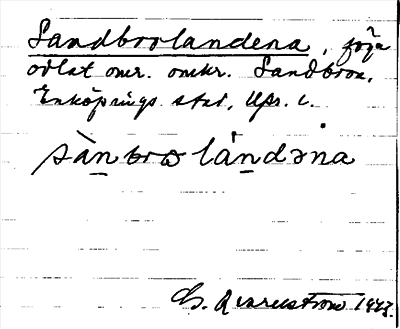 Sandbrolandena, föga
odlat omr. omkr. Sandbron,
Enköpings stad, Ups. l.
sàn bro lándəna
1943.